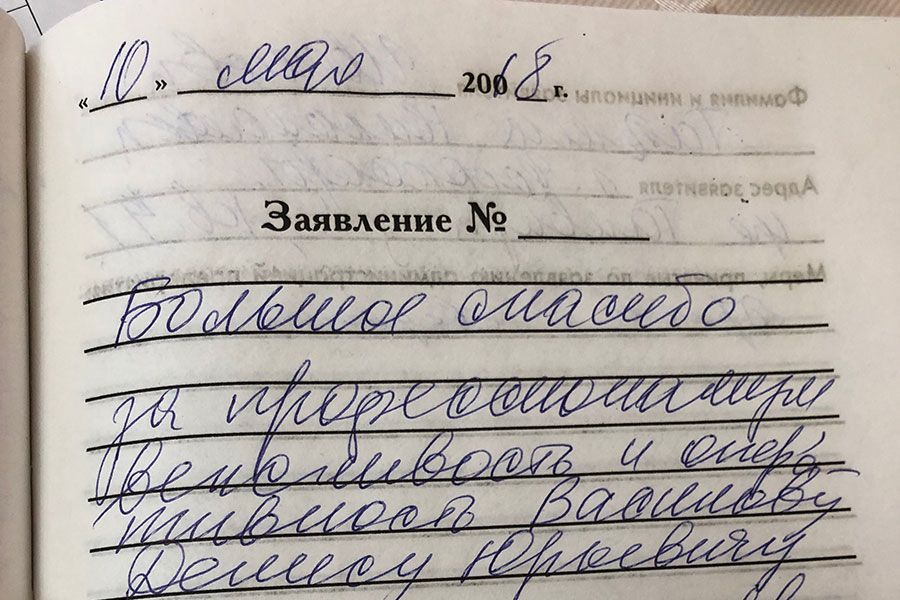 « 10 » мая 2018 г.
Заявление №
Большое спасибо
за профессионализм
вежливость и опера
тивность Василову
Денису Юрьевичу